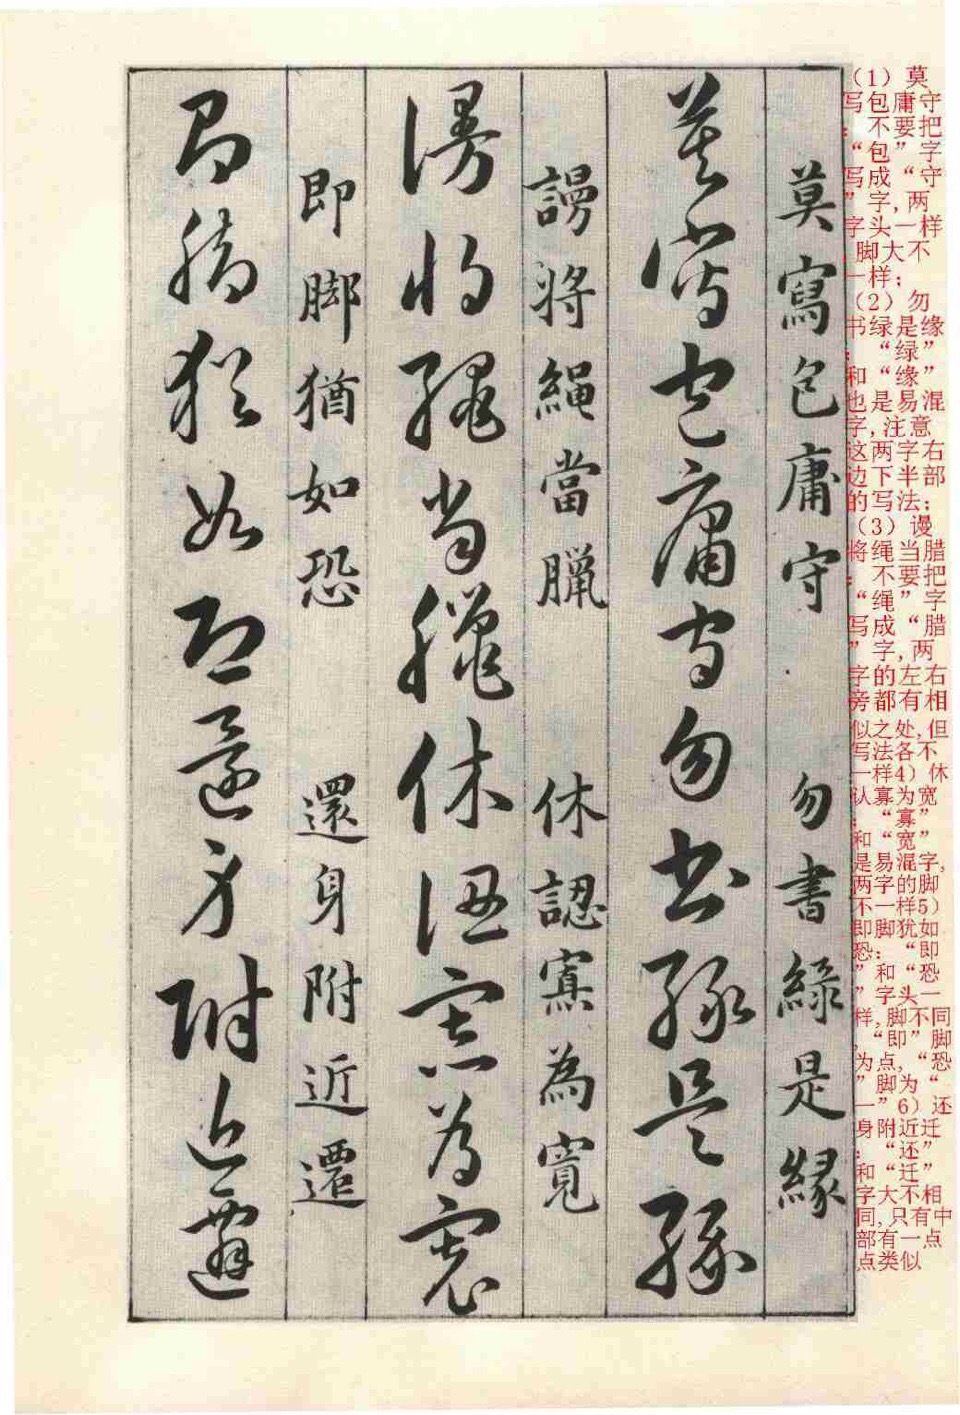 莫寫包庸守 勿書緑是縁
莫寫包庸守勿書緑是縁
謾將繩當臘 休認寡為寬
謾將繩當臘休認寡為寬
即脚猶如恐 還身附近遷
即脚猶如恐還身附近遷
（1）莫
写包庸守
：不要把
“包”字
写成“守
”字,两
字头一样
,脚大不
一样；
（2）勿
书绿是缘
：“绿”
和“缘”
也是易混
字,注意
这两字右
边下半部
的写法；
（3）谩
将绳当腊
：不要把
“绳”字
写成“腊
”字,两
字的左右
旁都有相
似之处,但
写法各不
一样4）休
认寡为宽
：“寡”
和“宽”
是易混字,
两字的脚
不一样5）
即脚犹如
恐：“即
”和“恐
”字头一
样,脚不同
,“即”脚
为点,“恐
”脚为“
一”6）还
身附近迁
：“还”
和“迁”
字大不相
同,只有中
部有一点
点类似